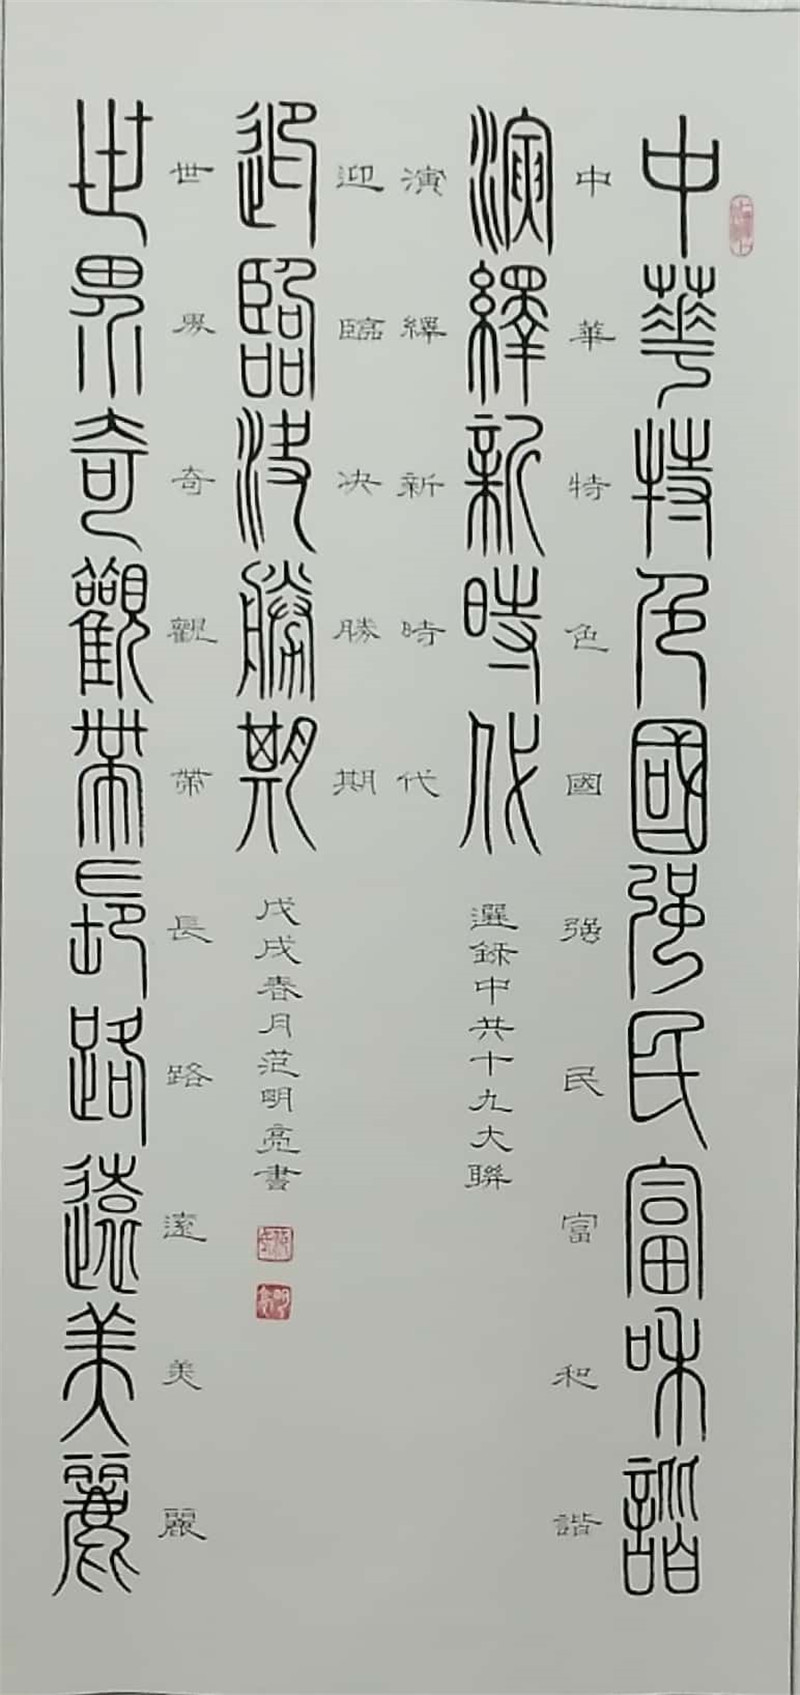 中華特色國强民富和諧
中華特色國强民富和諧
演繹新時代
選録中共十九大聯
演繹新時代
迎臨决勝期
迎臨決勝期
戊戌春月范明亮書
世界奇觀帶長路遠美麗
世界奇觀帶長路遠美麗